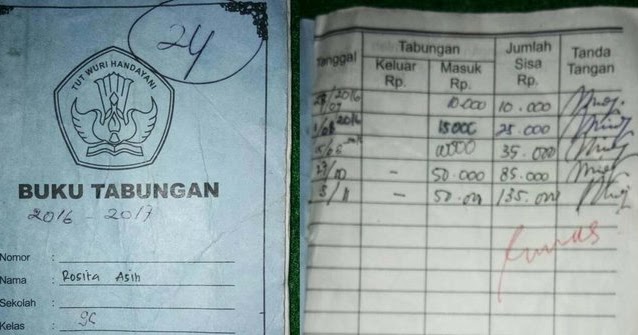 24
TUT WURI HANDAYANI
BUKU TABUNGAN
2016 - 2017
Nomor :
Nama : Rosita Asih
Sekolah :
Kelas : 9c
Tanggal
Tabungan
Keluar Rp.
Masuk Rp.
Jumlah Sisa Rp.
Tanda Tangan
2016 10.000 10.000
2016 15000 25.000
10000 35.000
27/10 - 50.000 85.000
3/11 - 50.000 135.000
Lunas